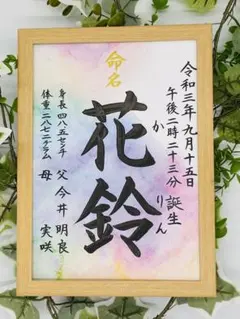 令和三年九月十五日
午後二時二十三分
誕生
命名
花鈴
かりん
身長四八.五センチ
体重二八七二グラム
父 今井 明良
母 実咲